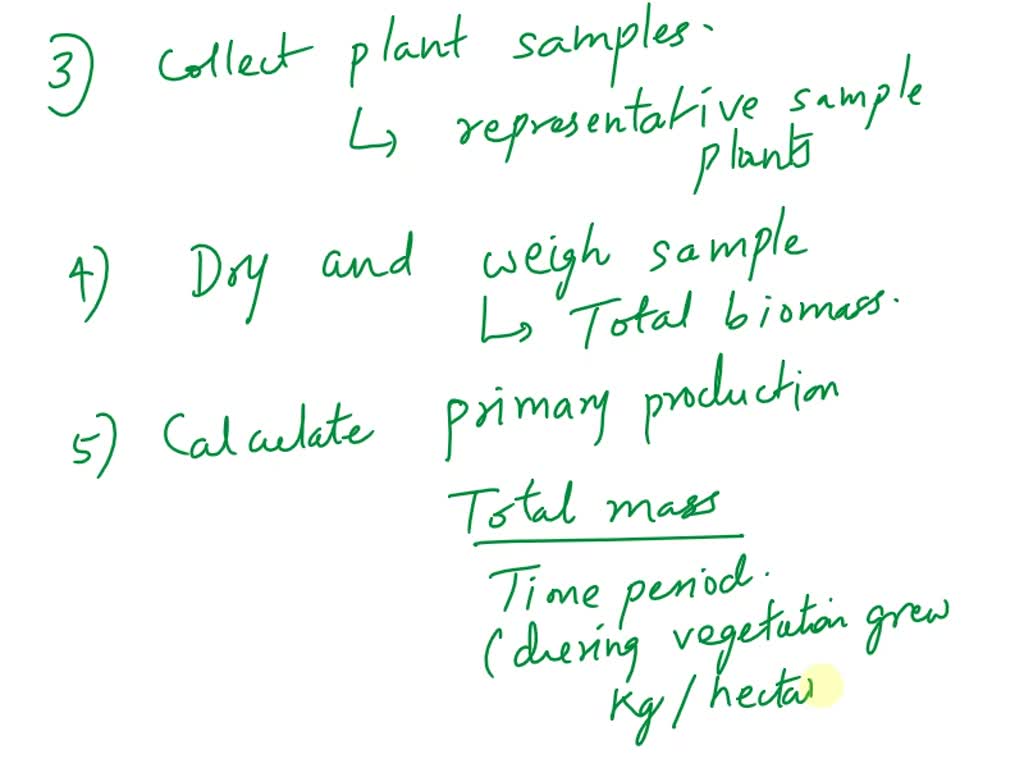 3) Collect plant samples.
↳ representative sample
plants
4) Dry and weigh sample
↳ Total biomass.
5) Calculate primary production
Total mass
Time period.
(during vegetation grew
kg/hecta